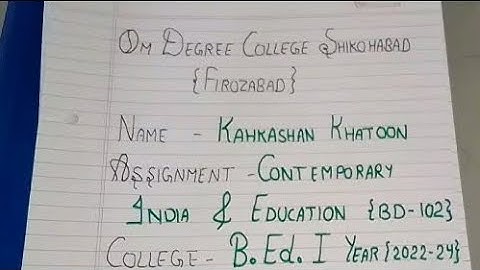 Om Degree College Shikohabad
{Firozabad}
Name - Kahkashan Khatoon
Assignment - Contemporary
India & Education {BD-102}
College - B.Ed. I Year {2022-24}